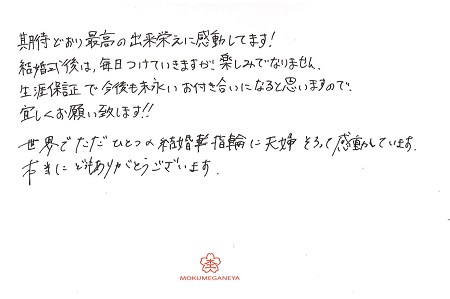 期待どおり最高の出来栄えに感動してます!
結婚式後は、毎日つけていきますが、楽しみでなりません。
生涯保証で今後も末永いお付き合いになると思いますので、
宜しくお願い致します!!
世界でただひとつの結婚指輪に夫婦そろって感動しています。
本当にどうもありがとうございます。
MOKUMEGANEYA